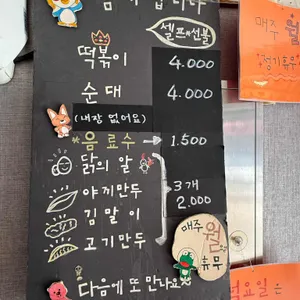 셀프&선불
떡볶이 4.000
순대 4.000
(내장 없어요)
*음료수 1.500
닭의 알
야끼만두 3개
김말이 2.000
고기만두
매주 월 휴무
다음에 또 만나요
매주 월
정기휴무